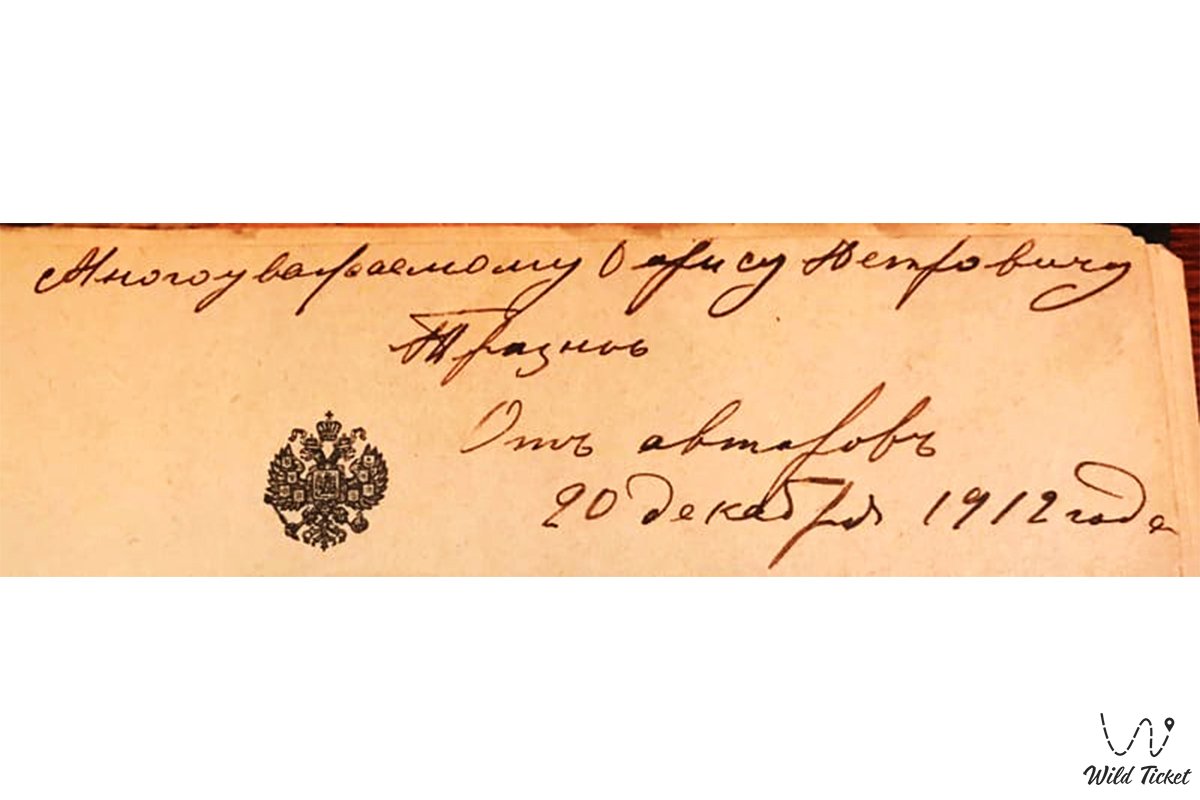 Многоуважаемому Борису Петровичу
Тризнѣ
Отъ авторовъ
20 декабря 1912 года
Wild Ticket